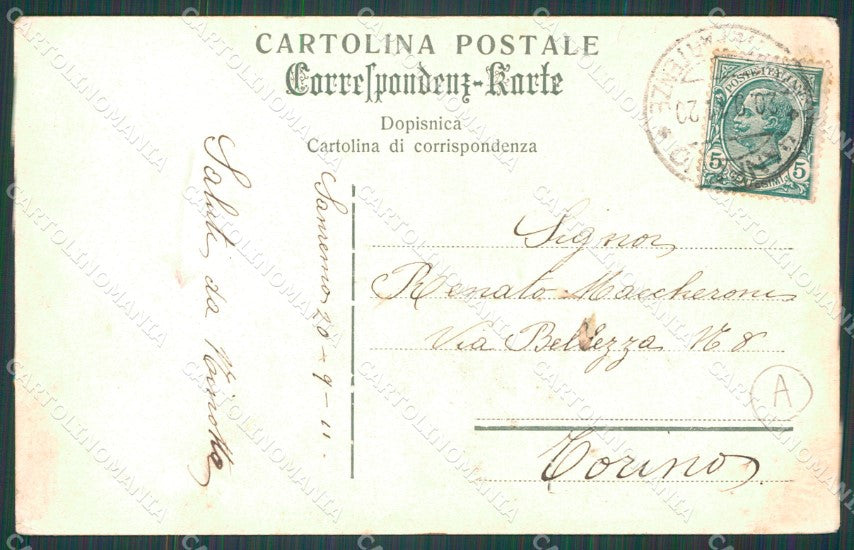 CARTOLINA POSTALE
Correspondenz-Karte
Dopisnica
Cartolina di corrispondenza
POSTE ITALIANE
5 5
CENTESIMI
Sanremo 20-9-11-
Saluti da
Signor
Renato Maccheroni
Via Bellezza N 8
Torino
A
CARTOLINOMANIA